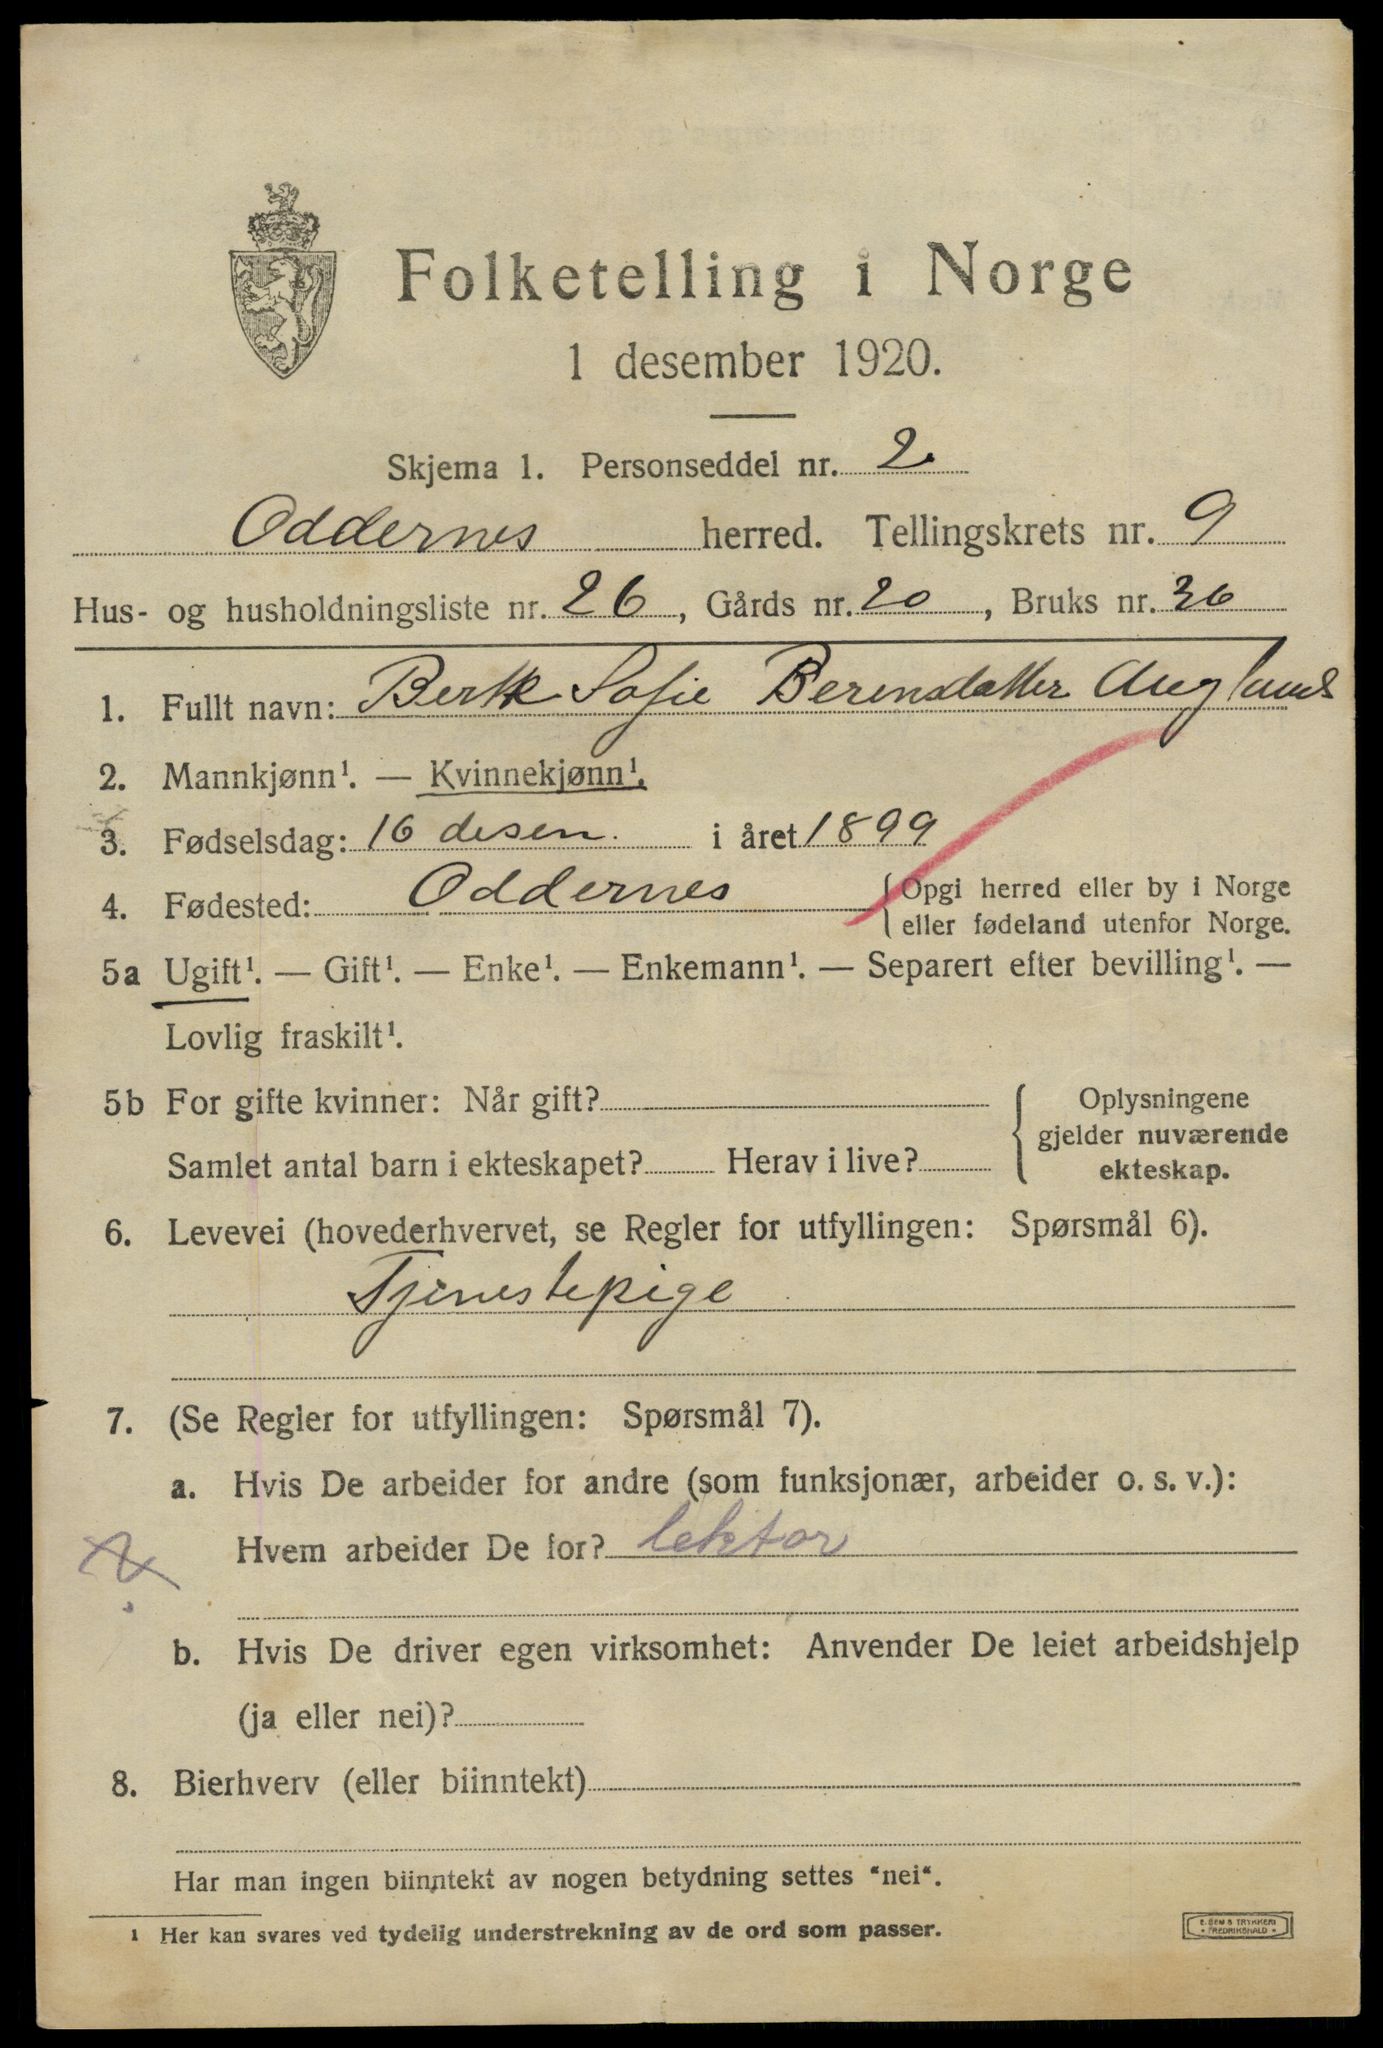 Folketelling i Norge
1 desember 1920.
Skjema 1. Personseddel nr. 2
Oddernes herred. Tellingskrets nr. 9
Hus- og husholdningsliste nr. 26, Gårds nr. 20, Bruks nr. 36
1. Fullt navn: Sofie Berensdatter Augland
2. Mannkjønn¹. — Kvinnekjønn¹.
3. Fødselsdag: 16 desem. i året 1899
4. Fødested: Oddernes { Opgi herred eller by i Norge
eller fødeland utenfor Norge.
5a Ugift¹. — Gift¹. — Enke¹. — Enkemann¹. — Separert efter bevilling¹. —
Lovlig fraskilt¹.
5b For gifte kvinner: Når gift?
Samlet antal barn i ekteskapet? Herav i live?
Oplysningene
gjelder nuværende
ekteskap.
6. Levevei (hovederhvervet, se Regler for utfyllingen: Spørsmål 6).
Tjenestepige
7. (Se Regler for utfyllingen: Spørsmål 7).
a. Hvis De arbeider for andre (som funksjonær, arbeider o. s. v.):
Hvem arbeider De for? lektor
b. Hvis De driver egen virksomhet: Anvender De leiet arbeidshjelp
(ja eller nei)?
8. Bierhverv (eller biinntekt)
Har man ingen biinntekt av nogen betydning settes “nei“.
¹ Her kan svares ved tydelig understrekning av de ord som passer.
E. SEM'S TRYKKERI
• FREDRIKSHALD •